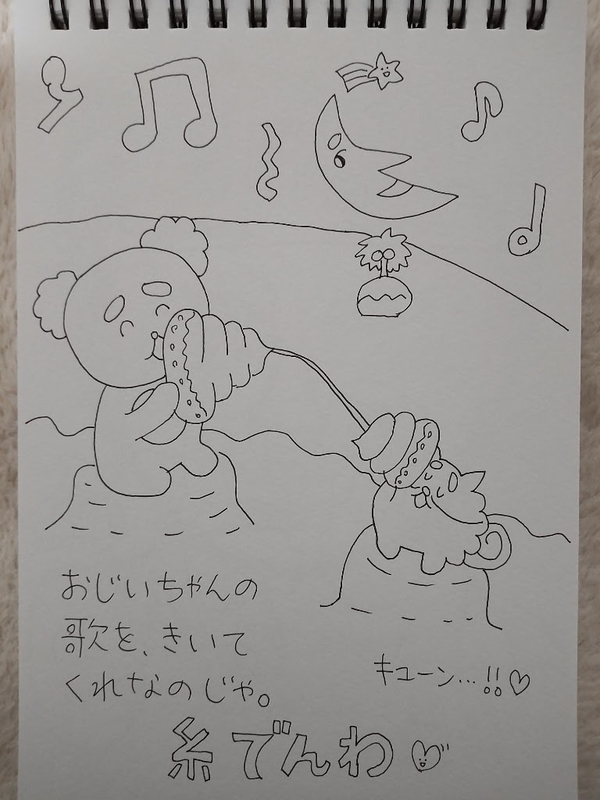 おじいちゃんの
歌を、きいて
くれなのじゃ。
キューン…!!♡
糸でんわ